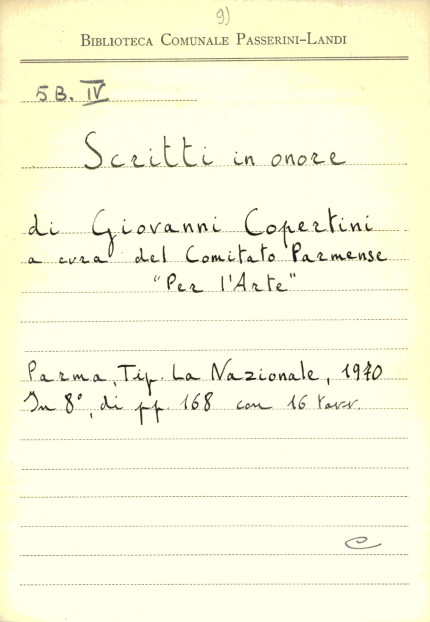 9)
BIBLIOTECA COMUNALE PASSERINI-LANDI
5B. IV
Scritti in onore
di Giovanni Copertini
a cura del Comitato Parmense
"Per l'Arte"
Parma, Tip. La Nazionale, 1970
In 8°, di pp. 168 con 16 tavv.
C